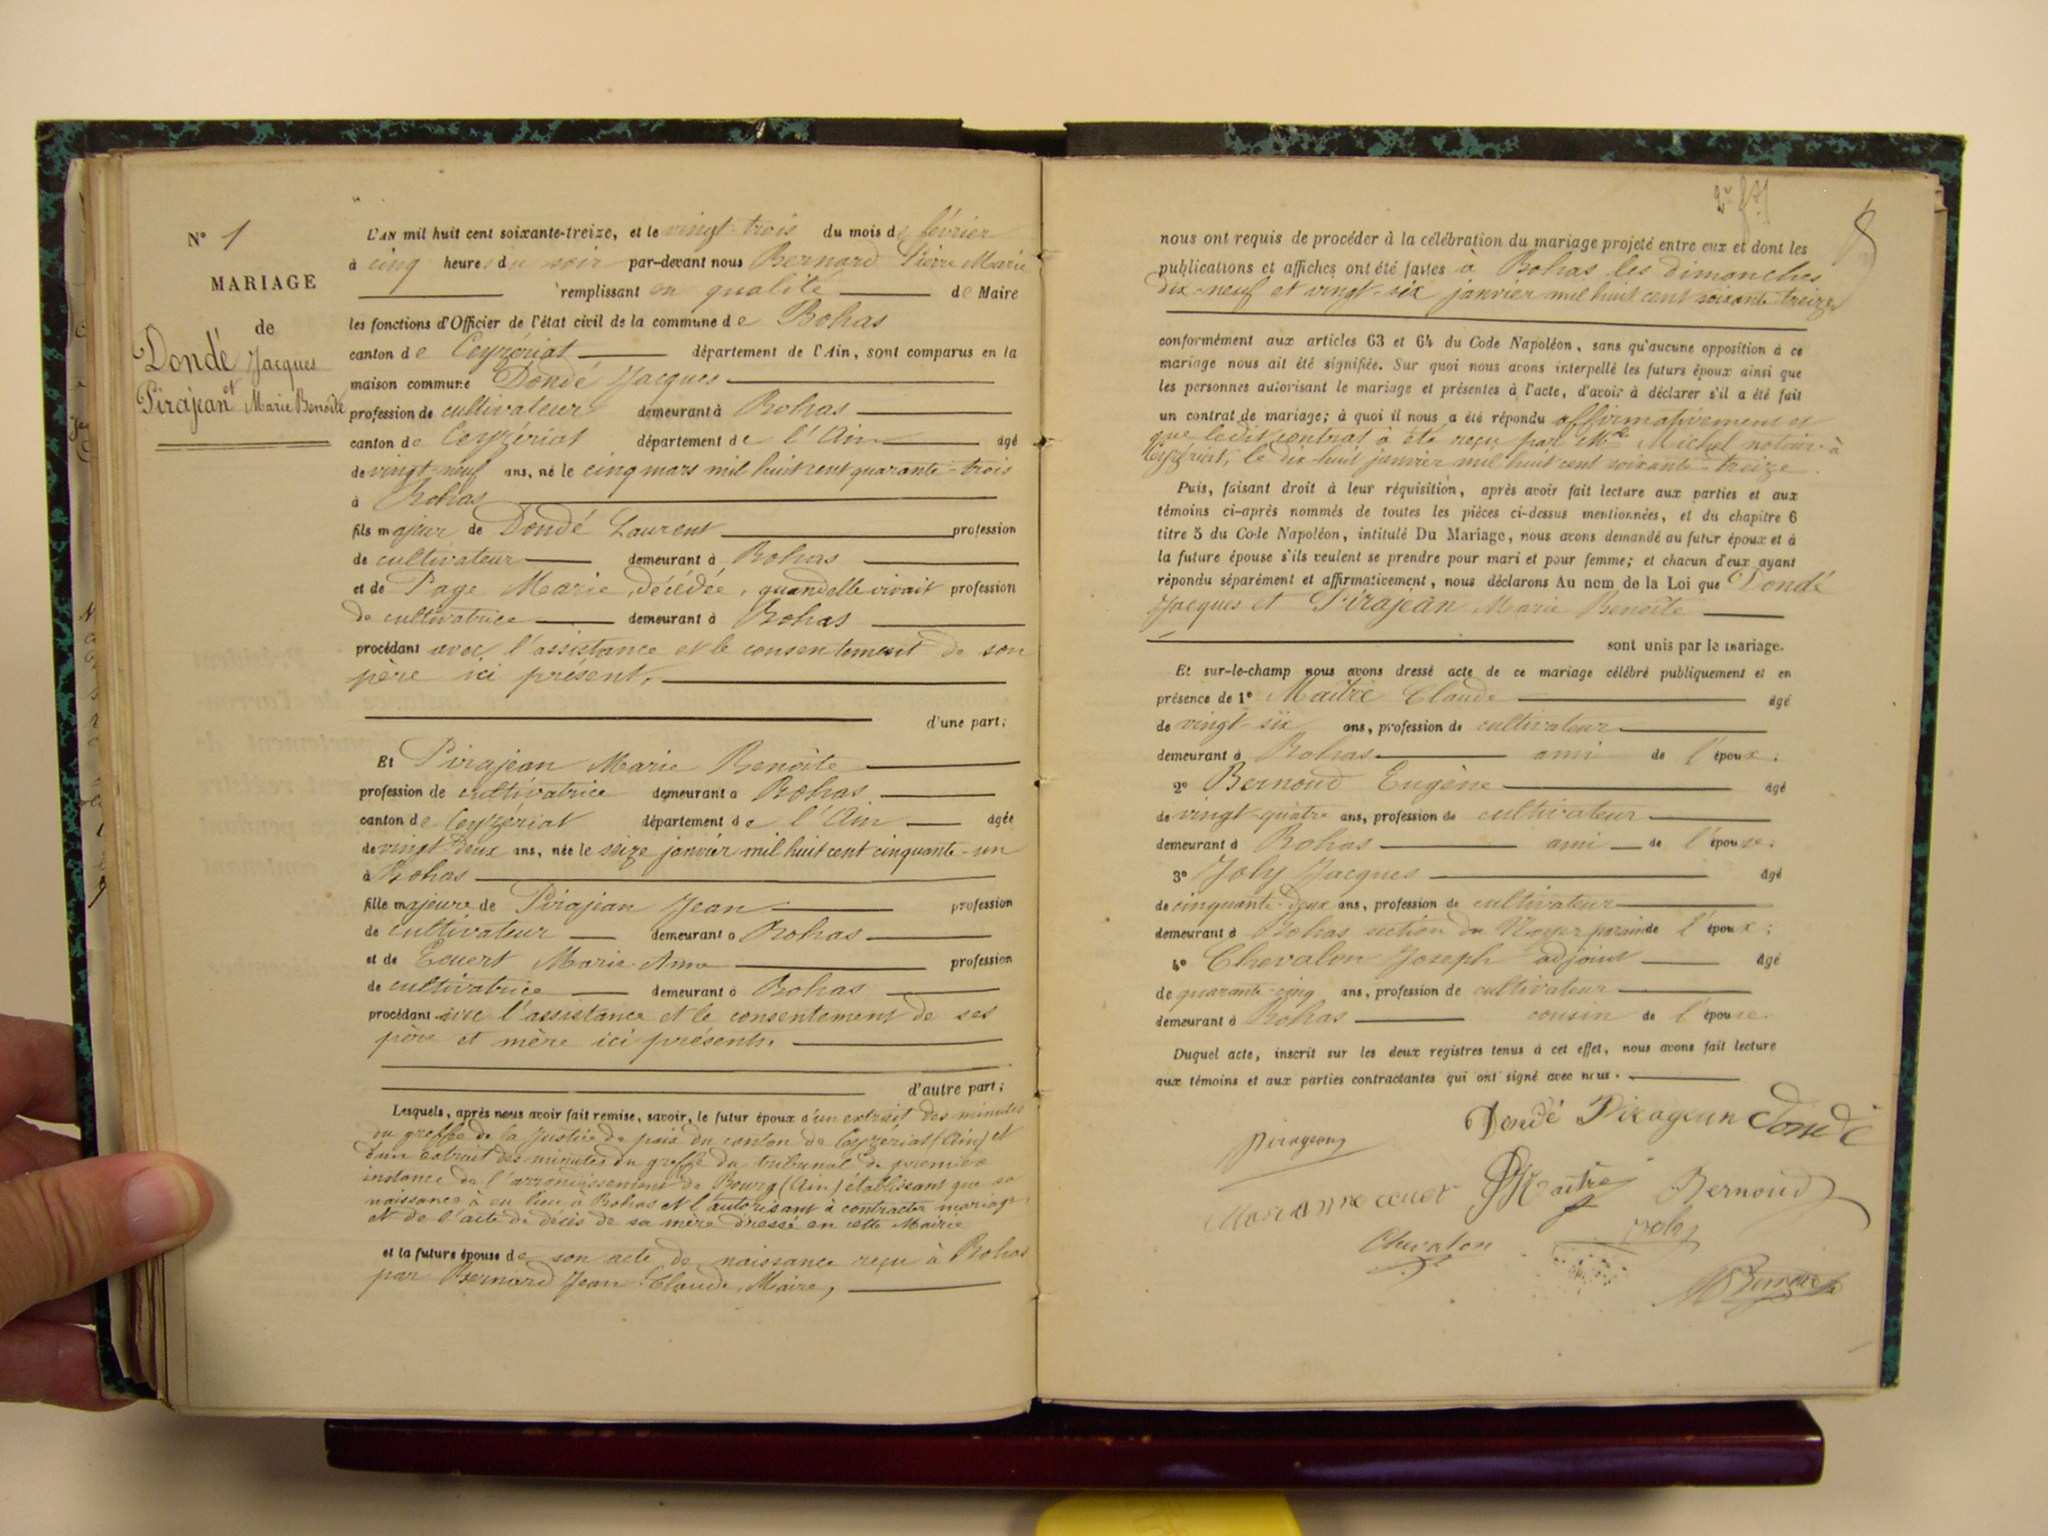 N° 1
MARIAGE
de
Dondé Jacques
et
Pirajean Marie Benoite
L'AN mil huit cent soixante-treize, et le vingt-trois du mois de février
à cinq heures du soir par-devant nous Bernard Pierre Marie
remplissant en qualité de Maire
les fonctions d'Officier de l'état civil de la commune de Bohas
canton de Ceyzériat département de l'Ain, sont comparus en la
maison commune Dondé Jacques
profession de cultivateur demeurant à Bohas
canton de Ceyzériat département de l'Ain âgé
de vingt-neuf ans, né le cinq mars mil huit cent quarante-trois
à Bohas
fils majeur de Dondé Laurent profession
de cultivateur demeurant à Bohas
et de Page Marie, décédée, quand elle vivait profession
de cultivatrice demeurant à Bohas
procédant avec l'assistance et le consentement de son
père ici présent,
d'une part;
Et Pirajean Marie Benoite
profession de cultivatrice demeurant à Bohas
canton de Ceyzériat département de l'Ain âgée
de vingt-deux ans, née le seize janvier mil huit cent cinquante-un
à Bohas
fille majeure de Pirajean Jean profession
de cultivateur demeurant à Bohas
et de Ecuert Marie-Anne profession
de cultivatrice demeurant à Bohas
procédant avec l'assistance et le consentement de ses
père et mère ici présents,
d'autre part;
Lesquels, après nous avoir fait remise, savoir, le futur époux d'un extrait des minutes
du greffe de la justice de paix du canton de Ceyzériat (Ain) et
d'un extrait des minutes du greffe du tribunal de première
instance de l'arrondissement de Bourg (Ain) établissant que sa
naissance à eu lieu à Bohas et l'autorisant à contracter mariage,
et de l'acte de décès de sa mère dressé en cette Mairie
et la future épouse de son acte de naissance reçu à Bohas
par Bernard Jean-Claude, Maire,
8
nous ont requis de procéder à la célébration du mariage projeté entre eux et dont les
publications et affiches ont été faites à Bohas les dimanches
dix-neuf et vingt-six janvier mil huit cent soixante-treize
conformément aux articles 63 et 64 du Code Napoléon, sans qu'aucune opposition à ce
mariage nous ait été signifiée. Sur quoi nous avons interpellé les futurs époux ainsi que
les personnes autorisant le mariage et présentes à l'acte, d'avoir à déclarer s'il a été fait
un contrat de mariage; à quoi il nous a été répondu affirmativement et
que ledit contrat à été reçu par Me Michel notaire à
Ceyzériat, le dix-huit janvier mil huit cent soixante-treize.
Puis, faisant droit à leur réquisition, après avoir fait lecture aux parties et aux
témoins ci-après nommés de toutes les pièces ci-dessus mentionnées, et du chapitre 6
titre 5 du Code Napoléon, intitulé Du Mariage, nous avons demandé au futur époux et à
la future épouse s'ils veulent se prendre pour mari et pour femme; et chacun d'eux ayant
répondu séparément et affirmativement, nous déclarons Au nom de la Loi que Dondé
Jacques et Pirajean Marie Benoite
sont unis par le mariage.
Et sur-le-champ nous avons dressé acte de ce mariage célébré publiquement et en
présence de 1° Maitre Claude âgé
de vingt-six ans, profession de cultivateur
demeurant à Bohas ami de l'époux;
2° Bernoud Eugène âgé
de vingt-quatre ans, profession de cultivateur
demeurant à Bohas ami de l'épouse.
3° Joly Jacques âgé
de cinquante-deux ans, profession de cultivateur
demeurant à Bohas section du Noyer parain de l'époux;
4° Chevalon Joseph adjoint âgé
de quarante-cinq ans, profession de cultivateur
demeurant à Bohas cousin de l'épouse.
Duquel acte, inscrit sur les deux registres tenus à cet effet, nous avons fait lecture
aux témoins et aux parties contractantes qui ont signé avec nous.
Dondé Piragean Dondé
Piragean
Marianne ecuer Maitre Bernoud
Chevalon Joly
Bernard